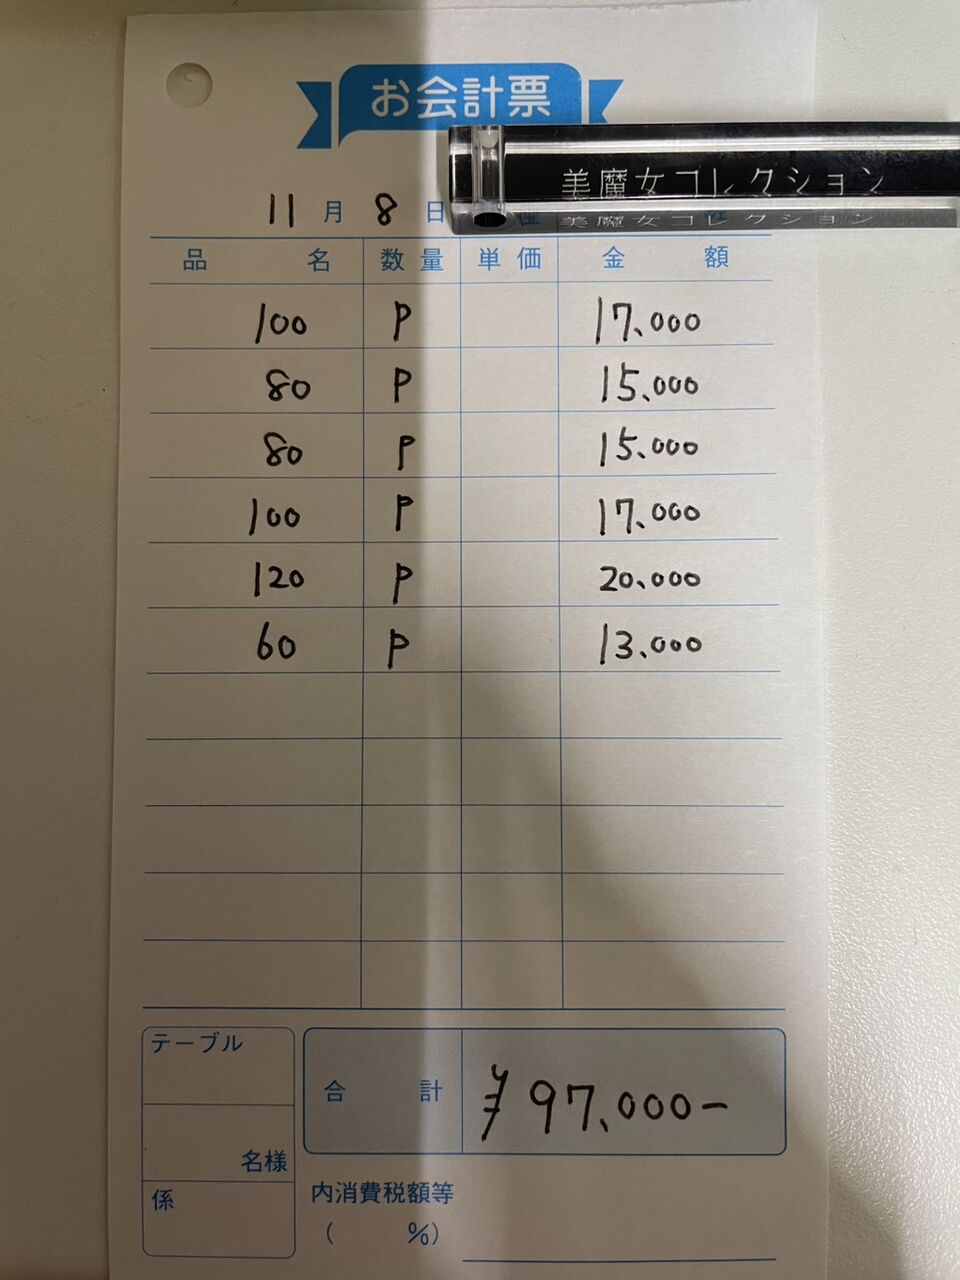 お会計票
美魔女コレクション
美魔女コレクション
11月8日
品名 数量 単価 金額
100 P 17.000
80 P 15.000
80 P 15.000
100 P 17.000
120 P 20.000
60 P 13.000
テーブル
名様
係
合計 ¥97.000-
内消費税額等
( %)